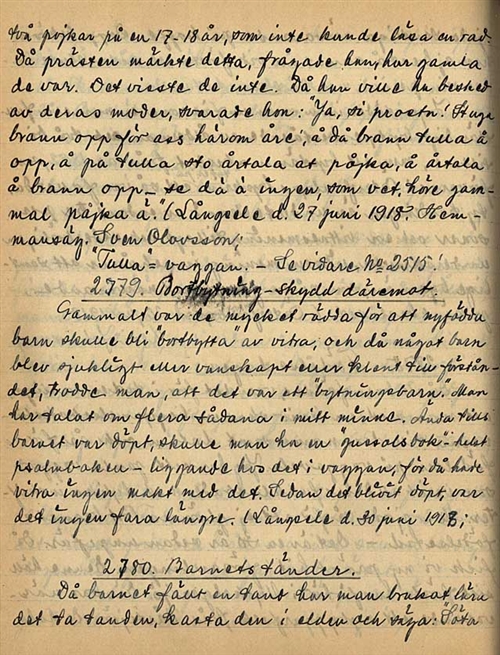 två pojkar på en 17-18 år, som inte kunde läsa en rad.
Då prästen märkte detta, frågade hun, hur gamla
de var. Det visste de inte. Då hun ville ha besked
av deras moder, svarade hon: "Ja, si prostn! Stuga
brann opp för ass härom åre, å då brann tulla å
opp, å på tulla sto årtala at påjka, å årtala
å brann opp – se då ä ingen, som vet, höre gam-
mal påjka ä." (Långsele d. 27 juni 1918. Hem-
mansäg. Sven Olovsson;
"Tulla" = vaggan. – Se vidare No 2515!
2779. Bortbytning – skydd däremot.
Gammalt var de mycket rädda för att nyfödda
barn skulle bli "bortbytta" av vitra, och då något barn
blev sjukligt eller vanskapt eller klent till förstån-
det, trodde man, att det var ett "bytningsbarn." Man
har talat om flera sådana i mitt minne. Ända tills
barnet var döpt, skulle man ha en "gussolsbok" – helst
psalmboken – liggande hos det i vaggan, för då hade
vitra ingen makt med det. Sedan det blivit döpt, var
det ingen fara längre. (Långsele d. 30 juni 1918;
2780. Barnets tänder.
Då barnet fällt en tand har man brukat lära
det ta tanden, kasta den i elden och säga: "Söta